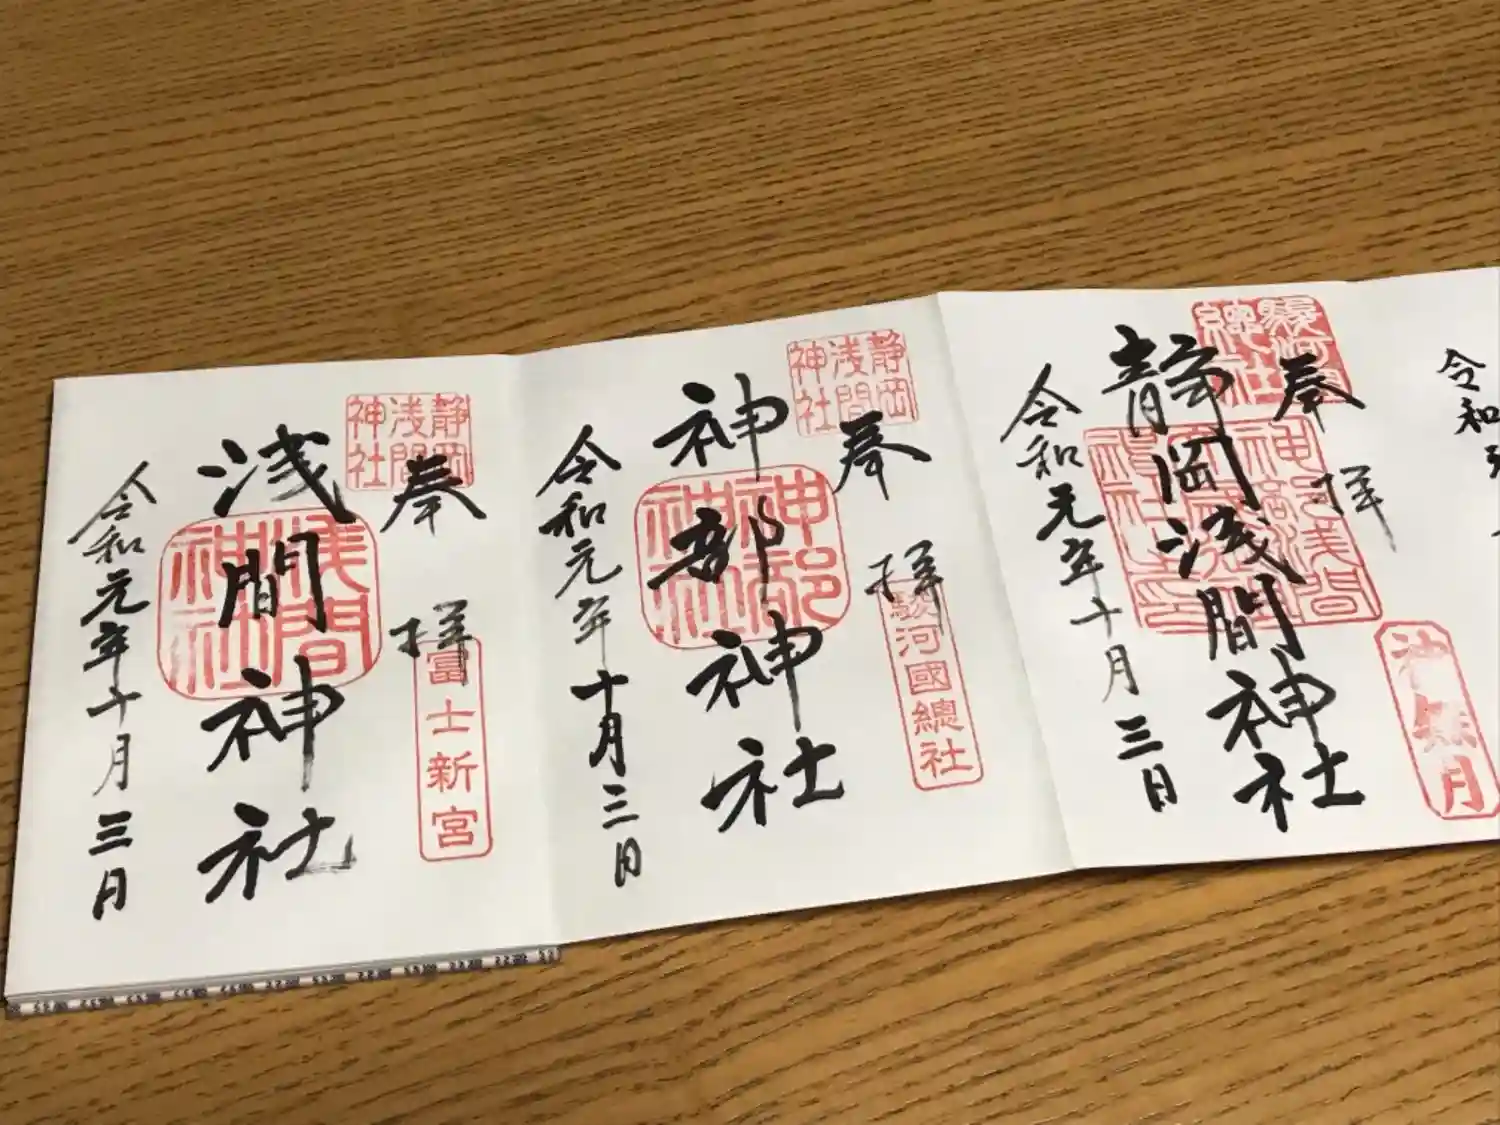 令和
奉拝
駿河國總社
静岡浅間神社
神無月
令和元年十月三日
奉拝
静岡浅間神社
駿河國總社
神部神社
神部神社
令和元年十月三日
奉拝
静岡浅間神社
冨士新宮
浅間神社
浅間神社
令和元年十月三日